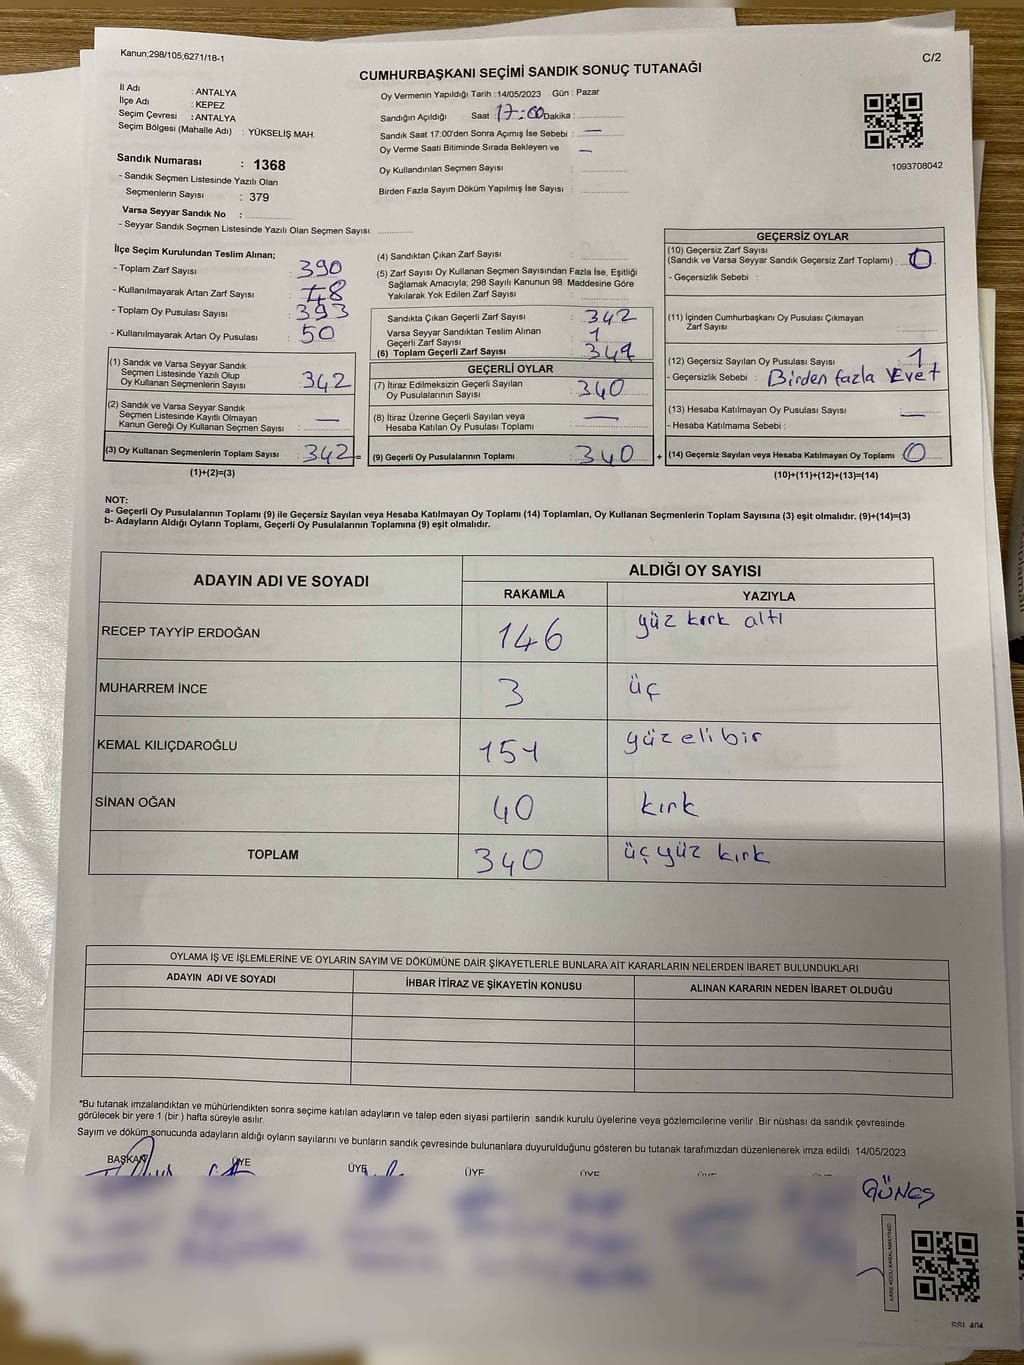 Kanun;298/105;6271/18-1
C/2
CUMHURBAŞKANI SEÇİMİ SANDIK SONUÇ TUTANAĞI
İl Adı : ANTALYA
İlçe Adı : KEPEZ
Seçim Çevresi : ANTALYA
Seçim Bölgesi (Mahalle Adı) : YÜKSELİŞ MAH.
Sandık Numarası : 1368
- Sandık Seçmen Listesinde Yazılı Olan
Seçmenlerin Sayısı : 379
Varsa Seyyar Sandık No :
- Seyyar Sandık Seçmen Listesinde Yazılı Olan Seçmen Sayısı:
Oy Vermenin Yapıldığı Tarih :14/05/2023 Gün : Pazar
Sandığın Açıldığı Saat :17:00 Dakika :
Sandık Saat 17:00'den Sonra Açımış İse Sebebi : —
Oy Verme Saati Bitiminde Sırada Bekleyen ve —
Oy Kullandırılan Seçmen Sayısı :
Birden Fazla Sayım Döküm Yapılmış İse Sayısı :
1093708042
İlçe Seçim Kurulundan Teslim Alınan;
- Toplam Zarf Sayısı : 390
- Kullanılmayarak Artan Zarf Sayısı : 48
- Toplam Oy Pusulası Sayısı : 393
- Kullanılmayarak Artan Oy Pusulası : 50
(1) Sandık ve Varsa Seyyar Sandık
Seçmen Listesinde Yazılı Olup
Oy Kullanan Seçmenlerin Sayısı : 342
(2) Sandık ve Varsa Seyyar Sandık
Seçmen Listesinde Kayıtlı Olmayan
Kanun Gereği Oy Kullanan Seçmen Sayısı : —
(3) Oy Kullanan Seçmenlerin Toplam Sayısı : 342 =
(1)+(2)=(3)
(4) Sandıktan Çıkan Zarf Sayısı :
(5) Zarf Sayısı Oy Kullanan Seçmen Sayısından Fazla İse, Eşitliği
Sağlamak Amacıyla; 298 Sayılı Kanunun 98. Maddesine Göre
Yakılarak Yok Edilen Zarf Sayısı :
Sandıkta Çıkan Geçerli Zarf Sayısı : 342
Varsa Seyyar Sandıktan Teslim Alınan
Geçerli Zarf Sayısı : 1
(6) Toplam Geçerli Zarf Sayısı :
GEÇERLİ OYLAR
(7) İtiraz Edilmeksizin Geçerli Sayılan
Oy Pusulalarının Sayısı : 340
(8) İtiraz Üzerine Geçerli Sayılan veya
Hesaba Katılan Oy Pusulası Toplamı : —
(9) Geçerli Oy Pusulalarının Toplamı : 340 +
GEÇERSİZ OYLAR
(10) Geçersiz Zarf Sayısı
(Sandık ve Varsa Seyyar Sandık Geçersiz Zarf Toplamı) : 0
- Geçersizlik Sebebi :
(11) İçinden Cumhurbaşkanı Oy Pusulası Çıkmayan
Zarf Sayısı :
(12) Geçersiz Sayılan Oy Pusulası Sayısı : 1
- Geçersizlik Sebebi : Birden fazla Evet
(13) Hesaba Katılmayan Oy Pusulası Sayısı : —
- Hesaba Katılmama Sebebi :
(14) Geçersiz Sayılan veya Hesaba Katılmayan Oy Toplamı : 0
(10)+(11)+(12)+(13)=(14)
NOT:
a- Geçerli Oy Pusulalarının Toplamı (9) ile Geçersiz Sayılan veya Hesaba Katılmayan Oy Toplamı (14) Toplamları, Oy Kullanan Seçmenlerin Toplam Sayısına (3) eşit olmalıdır. (9)+(14)=(3)
b- Adayların Aldığı Oyların Toplamı, Geçerli Oy Pusulalarının Toplamına (9) eşit olmalıdır.
ADAYIN ADI VE SOYADI
ALDIĞI OY SAYISI
RAKAMLA YAZIYLA
RECEP TAYYİP ERDOĞAN 146 yüz kırk altı
MUHARREM İNCE 3 üç
KEMAL KILIÇDAROĞLU 151 yüz eli bir
SİNAN OĞAN 40 kırk
TOPLAM 340 üç yüz kırk
OYLAMA İŞ VE İŞLEMLERİNE VE OYLARIN SAYIM VE DÖKÜMÜNE DAİR ŞİKAYETLERLE BUNLARA AİT KARARLARIN NELERDEN İBARET BULUNDUKLARI
ADAYIN ADI VE SOYADI
İHBAR İTİRAZ VE ŞİKAYETİN KONUSU
ALINAN KARARIN NEDEN İBARET OLDUĞU
*Bu tutanak imzalandıktan ve mühürlendikten sonra seçime katılan adayların ve talep eden siyasi partilerin sandık kurulu üyelerine veya gözlemcilerine verilir .Bir nüshası da sandık çevresinde
görülecek bir yere 1 (bir ) hafta süreyle asılır.
Sayım ve döküm sonucunda adayların aldığı oyların sayılarını ve bunların sandık çevresinde bulunanlara duyurulduğunu gösteren bu tutanak tarafımızdan düzenlenerek imza edildi. 14/05/2023
BAŞKAN ÜYE ÜYE ÜYE ÜYE
GÜNEŞ
KARE KODU KARALAMAYINIZ!